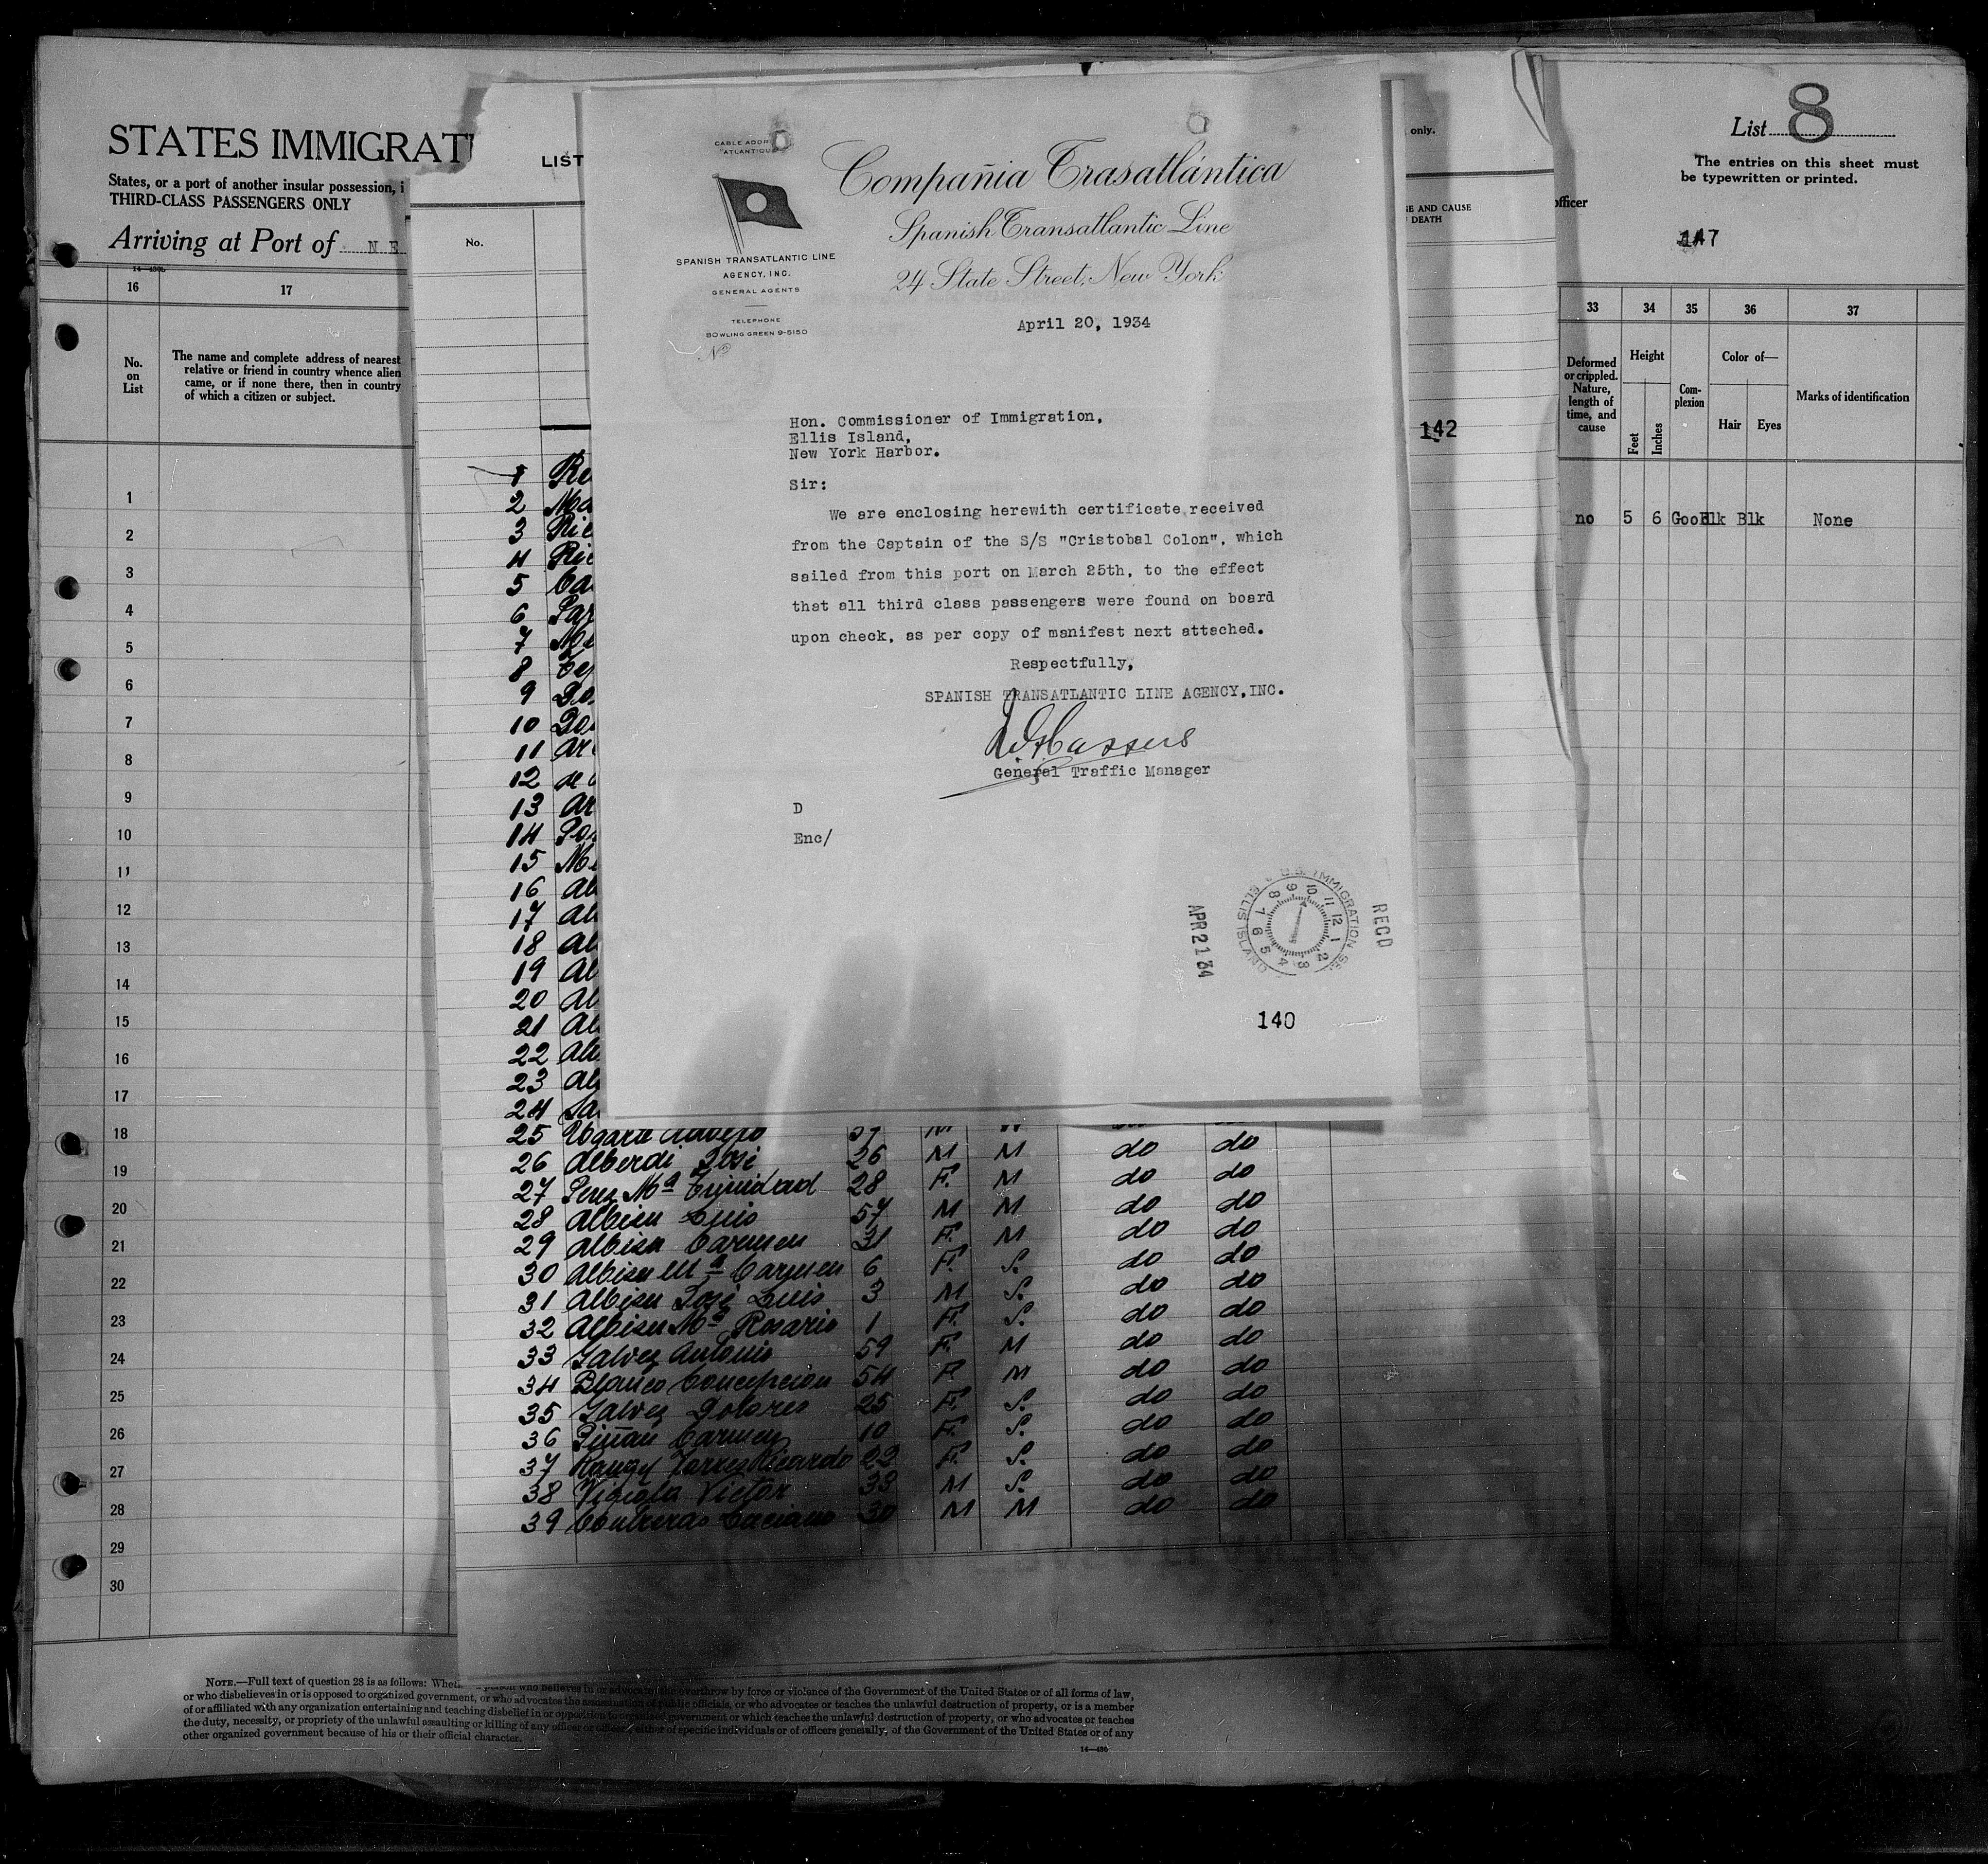 STATES IMMIGRAT
States, or a port of another insular possession, i
THIRD-CLASS PASSENGERS ONLY
Arriving at Port of N E
14—430b
16 17
No.
on
List
The name and complete address of nearest
relative or friend in country whence alien
came, or if none there, then in country
of which a citizen or subject.
1
2
3
4
5
6
7
8
9
10
11
12
13
14
15
16
17
18
19
20
21
22
23
24
25
26
27
28
29
30
LIST
No.
1
2
3
4
5
6
7
8
9
10
11
12
13
14
15
16
17
18
19
20
21
22
23
24
CABLE ADDR
"ATLANTICU
SPANISH TRANSATLANTIC LINE
AGENCY, INC.
GENERAL AGENTS
TELEPHONE
BOWLING GREEN 9-5150
Nº
Compañia Trasatlántica
Spanish Transatlantic Line
24 State Street, New York
April 20, 1934
Hon. Commissioner of Immigration,
Ellis Island,
New York Harbor.
Sir:
We are enclosing herewith certificate received
from the Captain of the S/S "Cristobal Colon", which
sailed from this port on March 25th, to the effect
that all third class passengers were found on board
upon check, as per copy of manifest next attached.
Respectfully,
SPANISH TRANSATLANTIC LINE AGENCY, INC.
General Traffic Manager
D
Enc/
RECD
U.S. IMMIGRATION SE
ELLIS ISLAND
APR 21 34
140
25 Ugarte
26 Alberdi José 26 M M do do
27 Perez Mª Trinidad 28 F. M do do
28 Albisu Luis 57 M M do do
29 Albisu Carmen 31 F. M do do
30 Albisu Mª Carmen 6 F. S. do do
31 Albisu José Luis 3 M S. do do
32 Albisu Mª Rosario 1 F. S. do do
33 Galvez Antonio 59 F. M do do
34 Blanco Concepcion 54 F M do do
35 Galvez Dolores 25 F. S. do do
36 Piñan Carmen 10 F. S. do do
37 Rangel Torres Ricardo 22 F. S. do do
38 Victor 33 M S. do do
39 Contreras Luciano 30 M M do do
only.
SE AND CAUSE
F DEATH
142
officer
List 8
The entries on this sheet must
be typewritten or printed.
147
33 34 35 36 37
Deformed
or crippled.
Nature,
length of
time, and
cause
Height
Feet
Inches
Com-
plexion
Color of—
Hair Eyes
Marks of identification
no 5 6 Good Blk Blk None
NOTE.—Full text of question 28 is as follows: Whet person who believes in or advocates the overthrow by force or violence of the Government of the United States or of all forms of law,
or who disbelieves in or is opposed to organized government, or who advocates the assassination of public officials, or who advocates or teaches the unlawful destruction of property, or is a member
of or affiliated with any organization entertaining and teaching disbelief in or opposition to organized government or which teaches the unlawful destruction of property, or who advocates or teaches
the duty, necessity, or propriety of the unlawful assaulting or killing of any officer or officers, either of specific individuals or of officers generally, of the Government of the United States or of any
other organized government because of his or their official character.
14—430